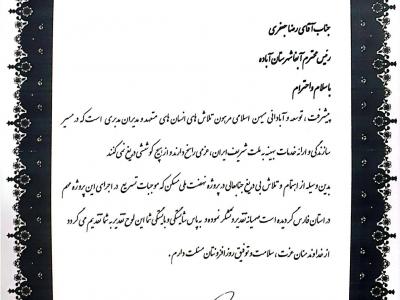 جناب آقای رضا جعفری
رئیس محترم آبفا شهرستان آباده
با سلام و احترام
پیشرفت ، توسعه و آبادانی میهن اسلامی مرهون تلاش های انسان های متعهد و مدیران مدبری است که در مسیر
سازندگی و ارائه خدمات بهینه به ملت شریف ایران، عزمی راسخ دارند و از هیچ کوششی دریغ نمی کنند
بدین وسیله از اهتمام و تلاش بی دریغ جنابعالی در پروژه نهضت ملی مسکن که موجبات تسریع در اجرای این پروژه مهم
در استان فارس گردیده است صمیمانه تقدیر و تشکر نموده و به پاس شایستگی و بایستگی شما این لوح تقدیر به شما تقدیم می گردد
از خداوند منان عزت ، سلامت و توفیق روز افزونتان مسئلت دارم .